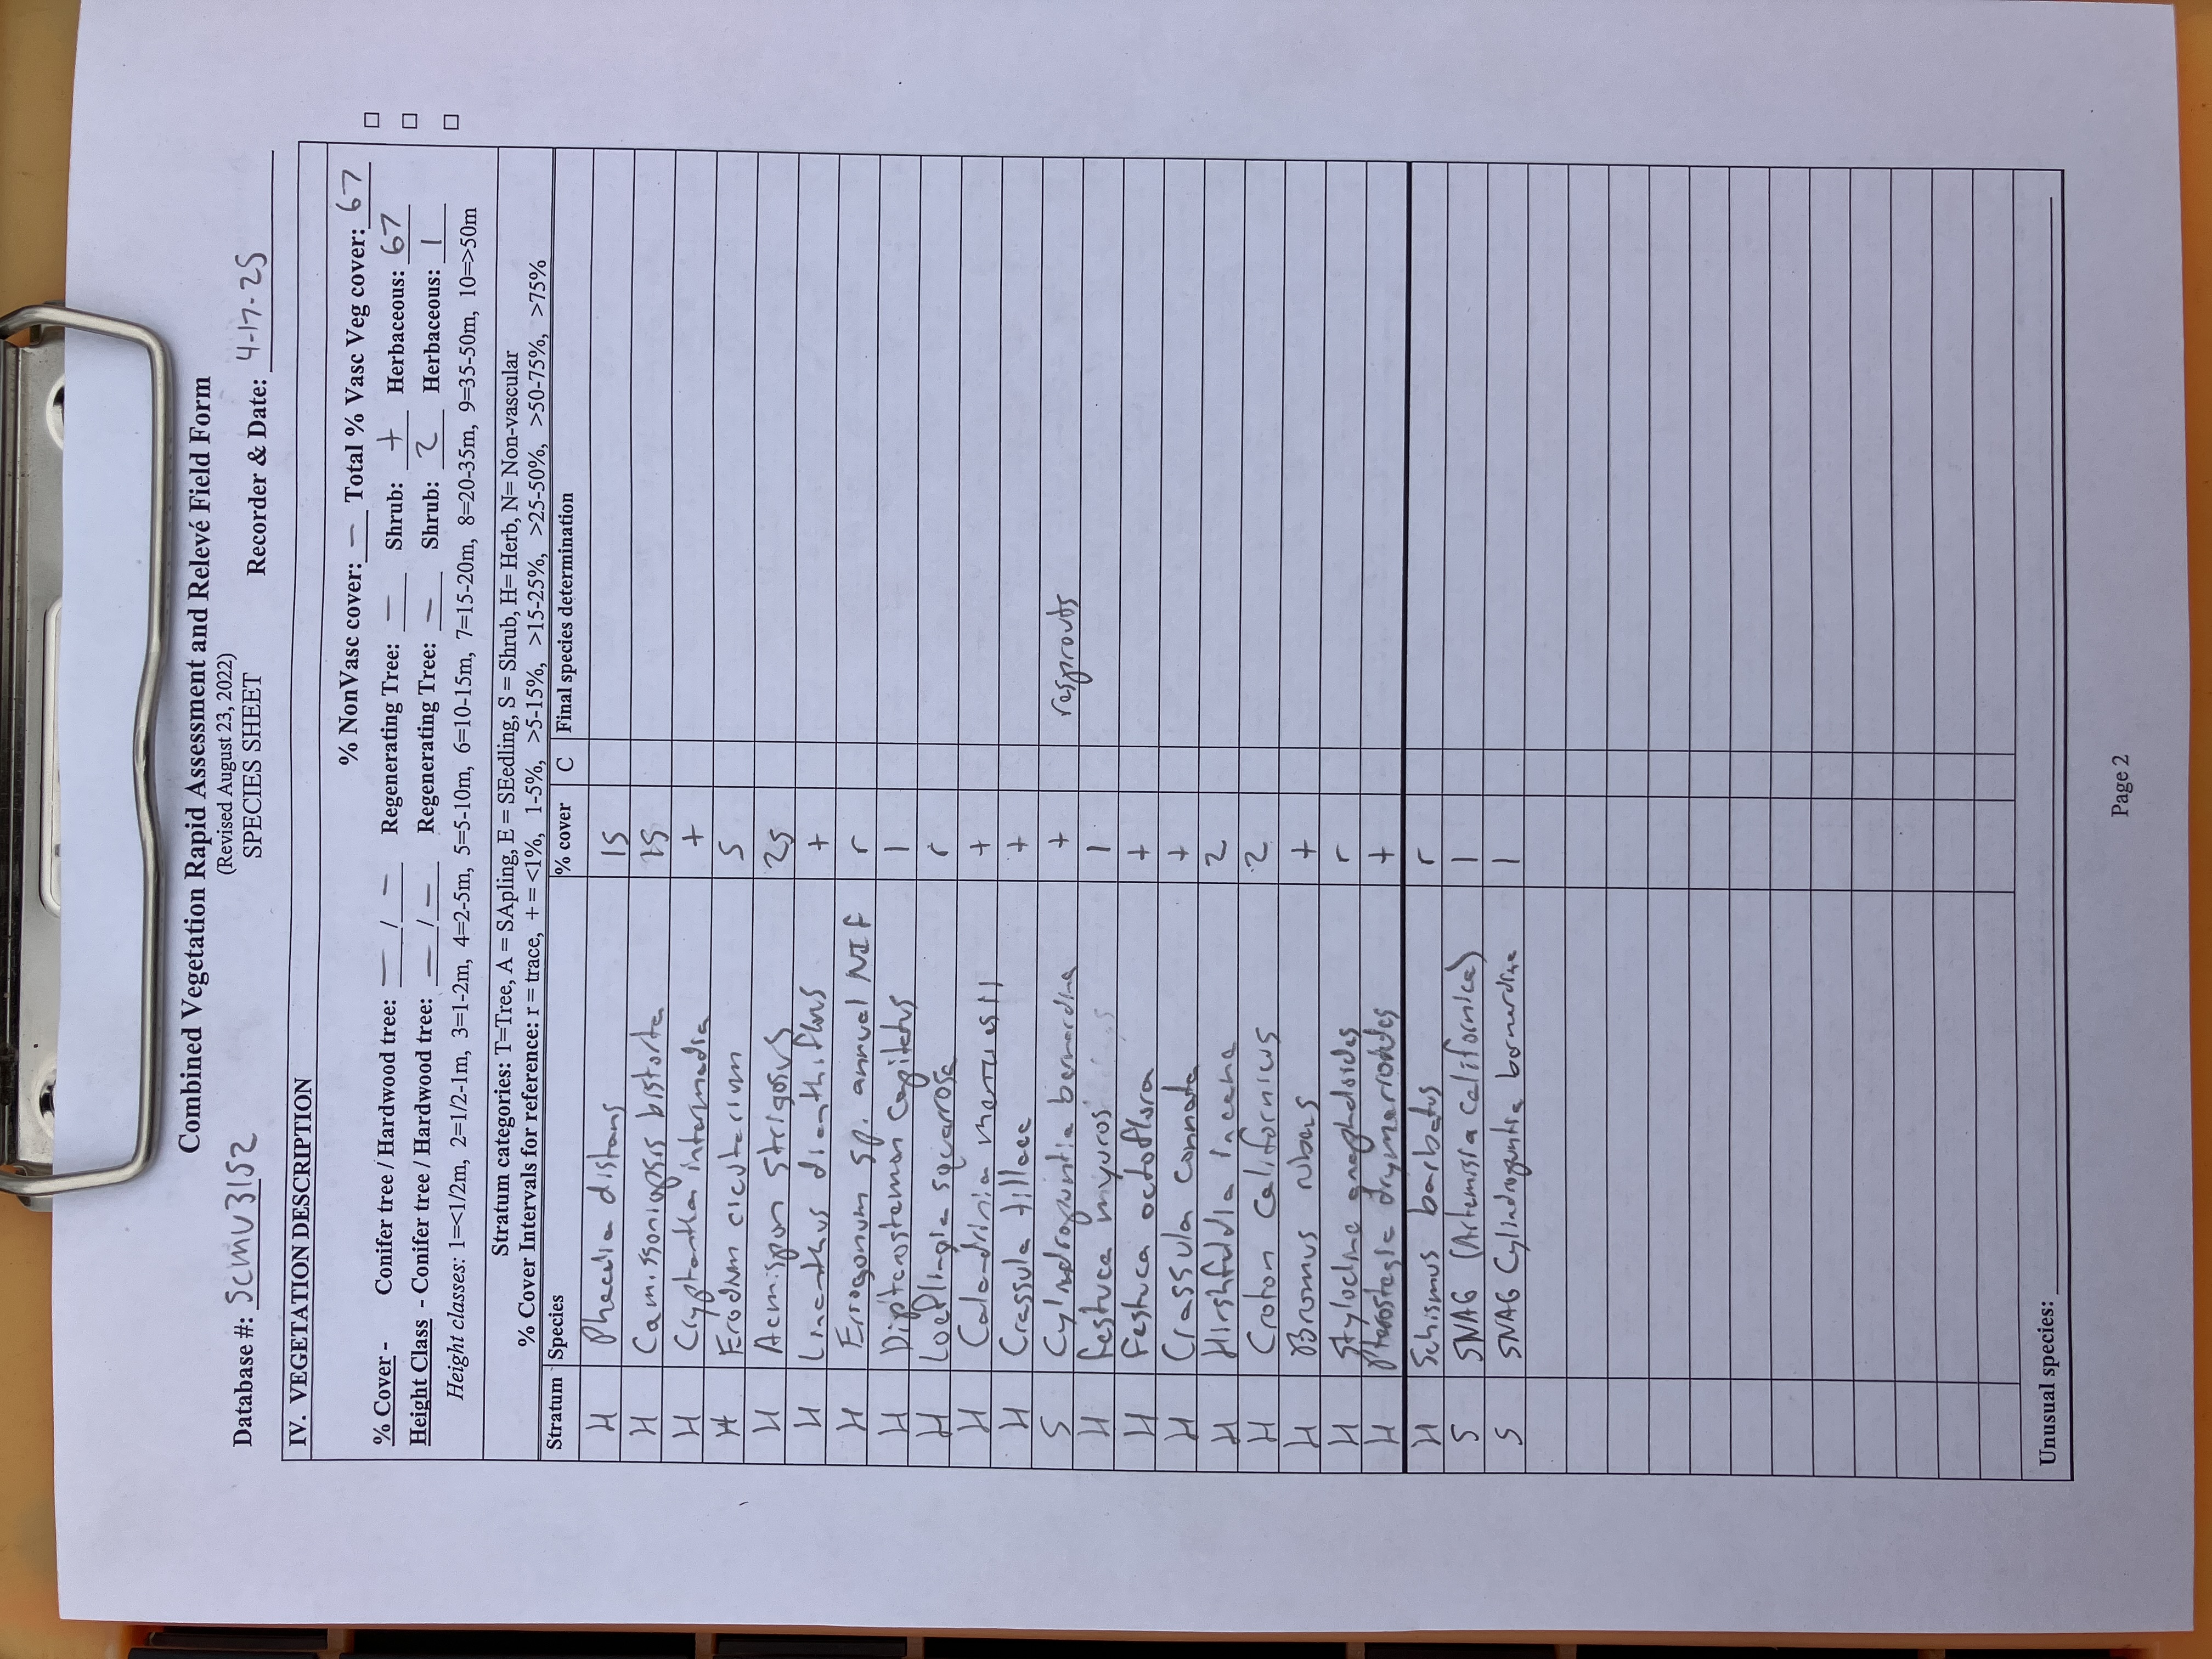 Combined Vegetation Rapid Assessment and Relevé Field Form
(Revised August 23, 2022)
SPECIES SHEET
Database #: SCMU3152 Recorder & Date: 4-17-25
IV. VEGETATION DESCRIPTION
% NonVasc cover: — Total % Vasc Veg cover: 67
% Cover - Conifer tree / Hardwood tree: — / — Regenerating Tree: — Shrub: + Herbaceous: 67 □
Height Class - Conifer tree / Hardwood tree: — / — Regenerating Tree: — Shrub: 2 Herbaceous: 1 □
Height classes: 1=<1/2m, 2=1/2-1m, 3=1-2m, 4=2-5m, 5=5-10m, 6=10-15m, 7=15-20m, 8=20-35m, 9=35-50m, 10=>50m □
Stratum categories: T=Tree, A = SApling, E = SEedling, S = Shrub, H= Herb, N= Non-vascular
% Cover Intervals for reference: r = trace, + = <1%, 1-5%, >5-15%, >15-25%, >25-50%, >50-75%, >75%
Stratum Species % cover C Final species determination
H Phacelia distans 15
H Camissoniopsis bistorta 15
H Cryptantha intermedia +
H Erodium cicutarium 5
H Acmispon strigosus 25
H Linanthus dianthiflorus +
H Eriogonum sp. annual NIF r
H Dipterostemon capitatus 1
H Loeflingia squarrosa r
H Calandrinia menziesii +
H Crassula tillaea +
S Cylindropuntia bernardina + resprouts
H Festuca myuros 1
H Festuca octoflora +
H Crassula connata +
H Hirshfeldia incana 2
H Croton californicus 2
H Bromus rubens +
H Stylocline gnaphaloides r
H Pterostegia drymarioides +
H Schismus barbatus r
S SNAG (Artemisia californica) 1
S SNAG Cylindropuntia bernardina 1
Unusual species:
Page 2